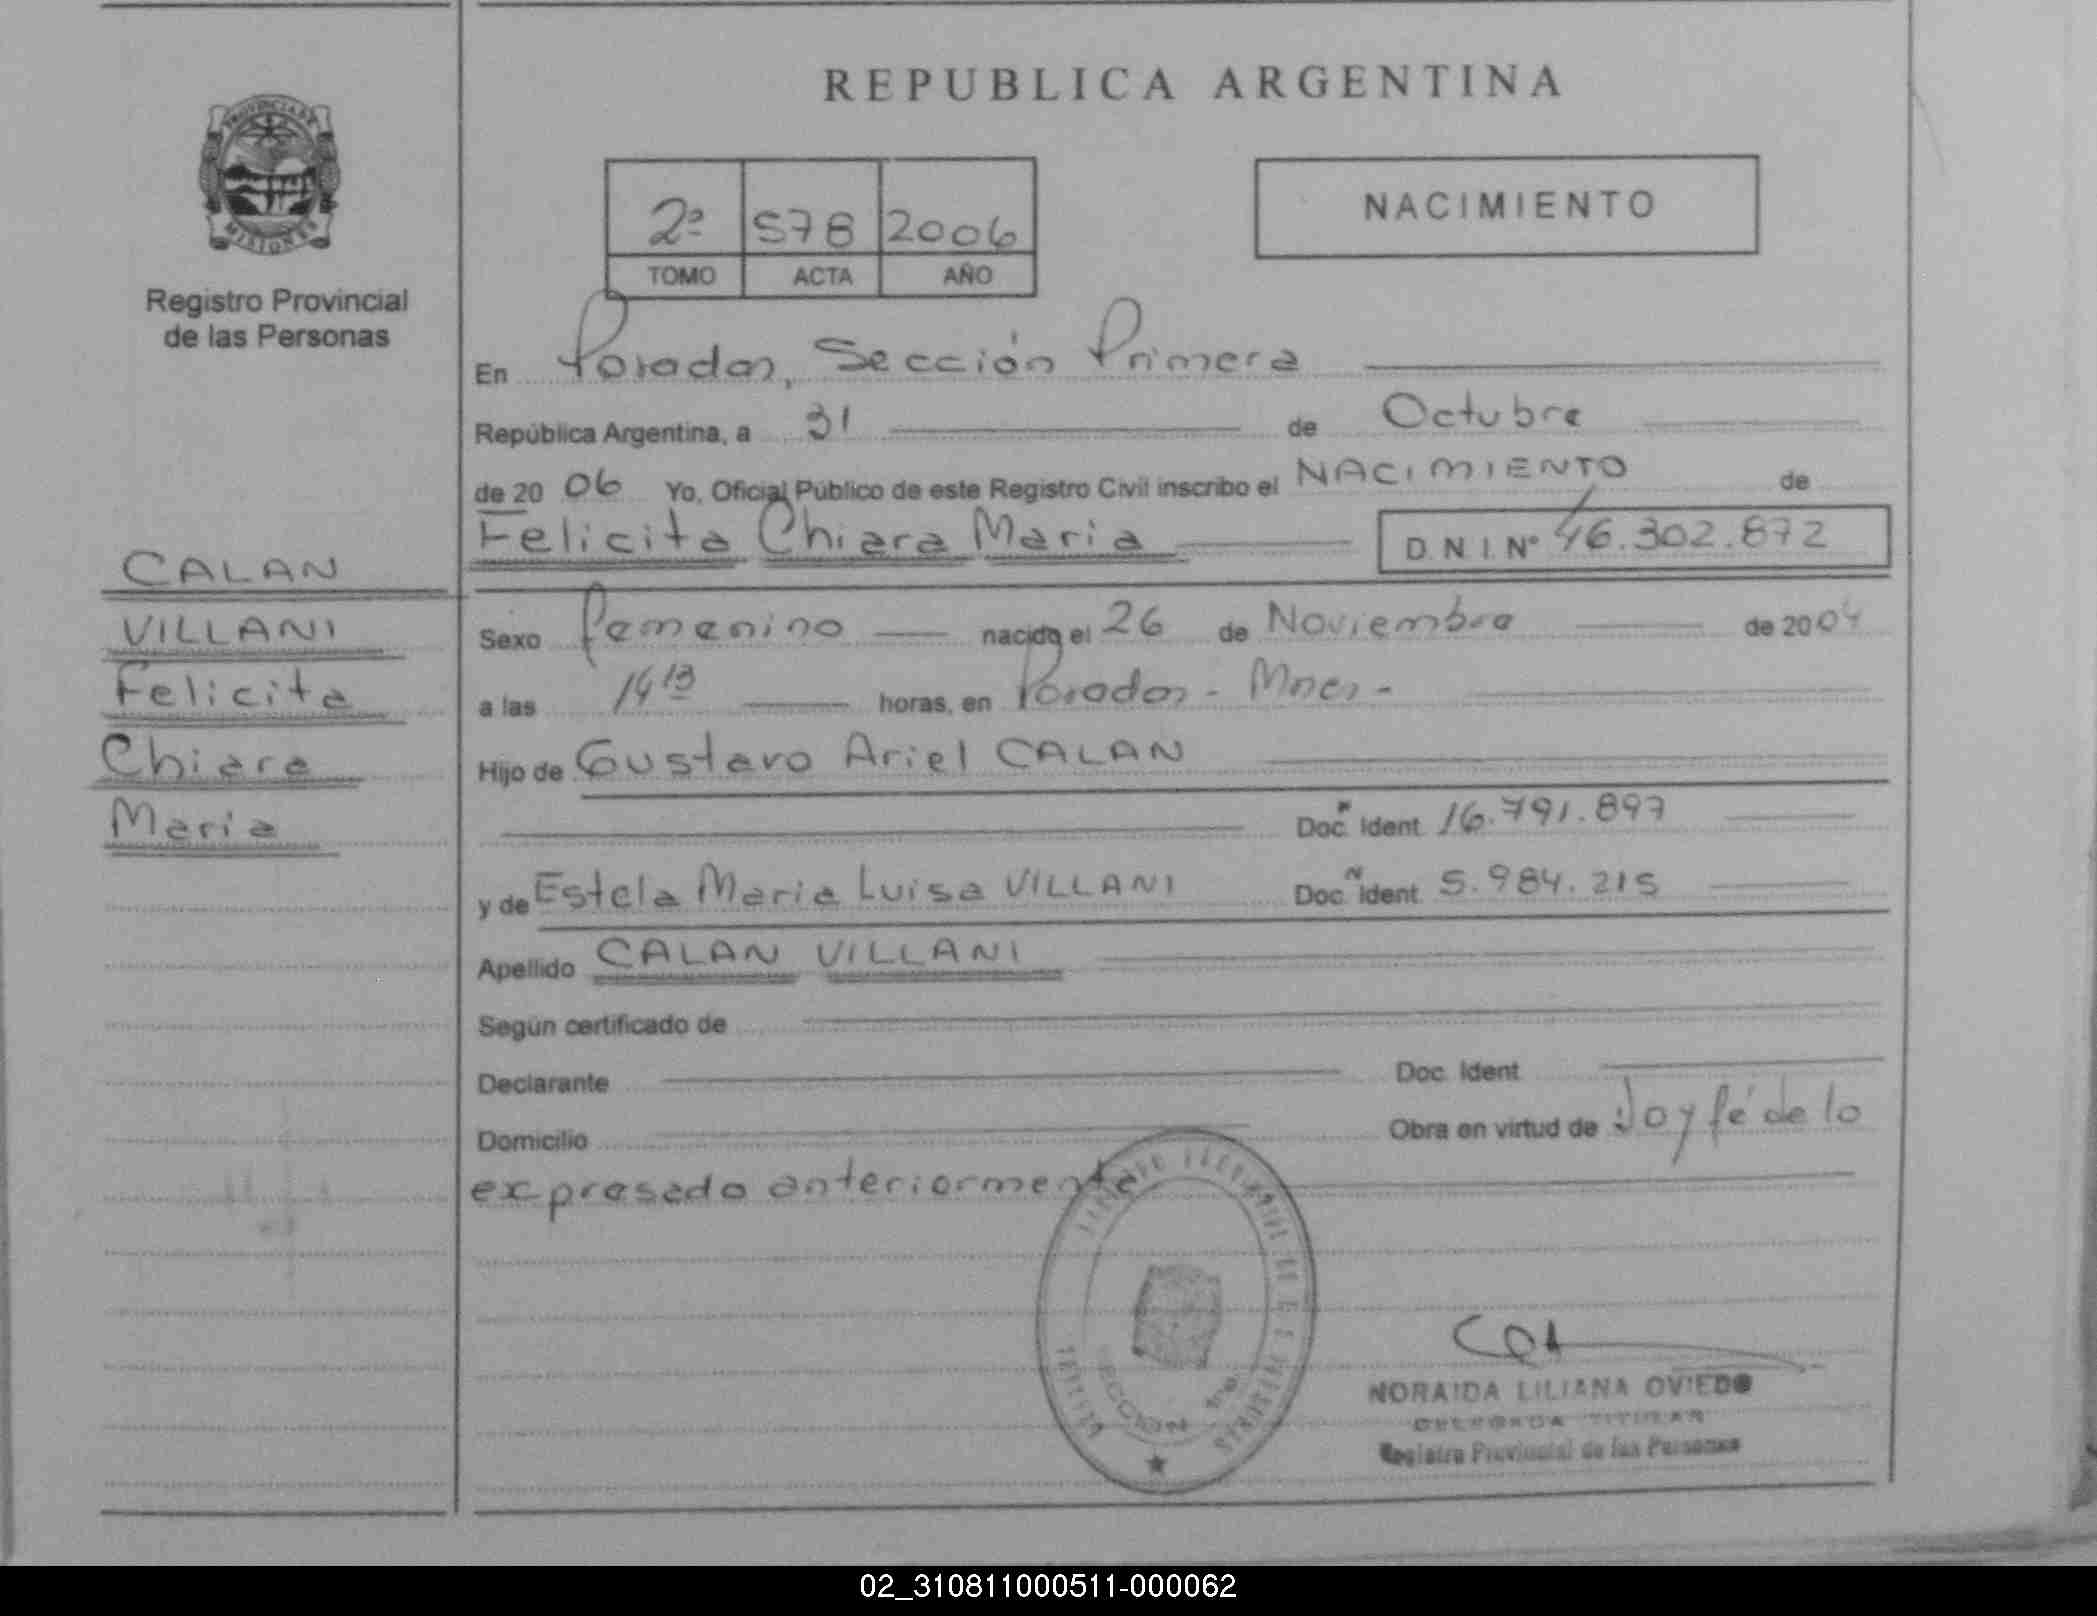 REPUBLICA ARGENTINA
PROVINCIA DE
MISIONES
Registro Provincial
de las Personas
2ª 578 2006
TOMO ACTA AÑO
NACIMIENTO
En Posadas, Sección Primera
República Argentina, a 31 de Octubre
de 20 06 Yo, Oficial Público de este Registro Civil inscribo el NACIMIENTO de
Felicita Chiara Maria D.N.I. Nº 46.302.872
CALAN
VILLANI
Felicita
Chiara
Maria
Sexo Femenino nacido el 26 de Noviembre de 2004
a las 14 13 horas, en Posadas - Mnes -
Hijo de Gustavo Ariel CALAN
Doc. Ident. 16.791.897
y de Estela Maria Luisa VILLANI Doc. Ident. 5.984.215
Apellido CALAN VILLANI
Según certificado de
Declarante Doc. Ident.
Domicilio Obra en virtud de Doy fé de lo
expresado anteriormente
SECCION 1ra.
NORAIDA LILIANA OVIEDO
DELEGADA TITULAR
Registro Provincial de las Personas
02_310811000511-000062